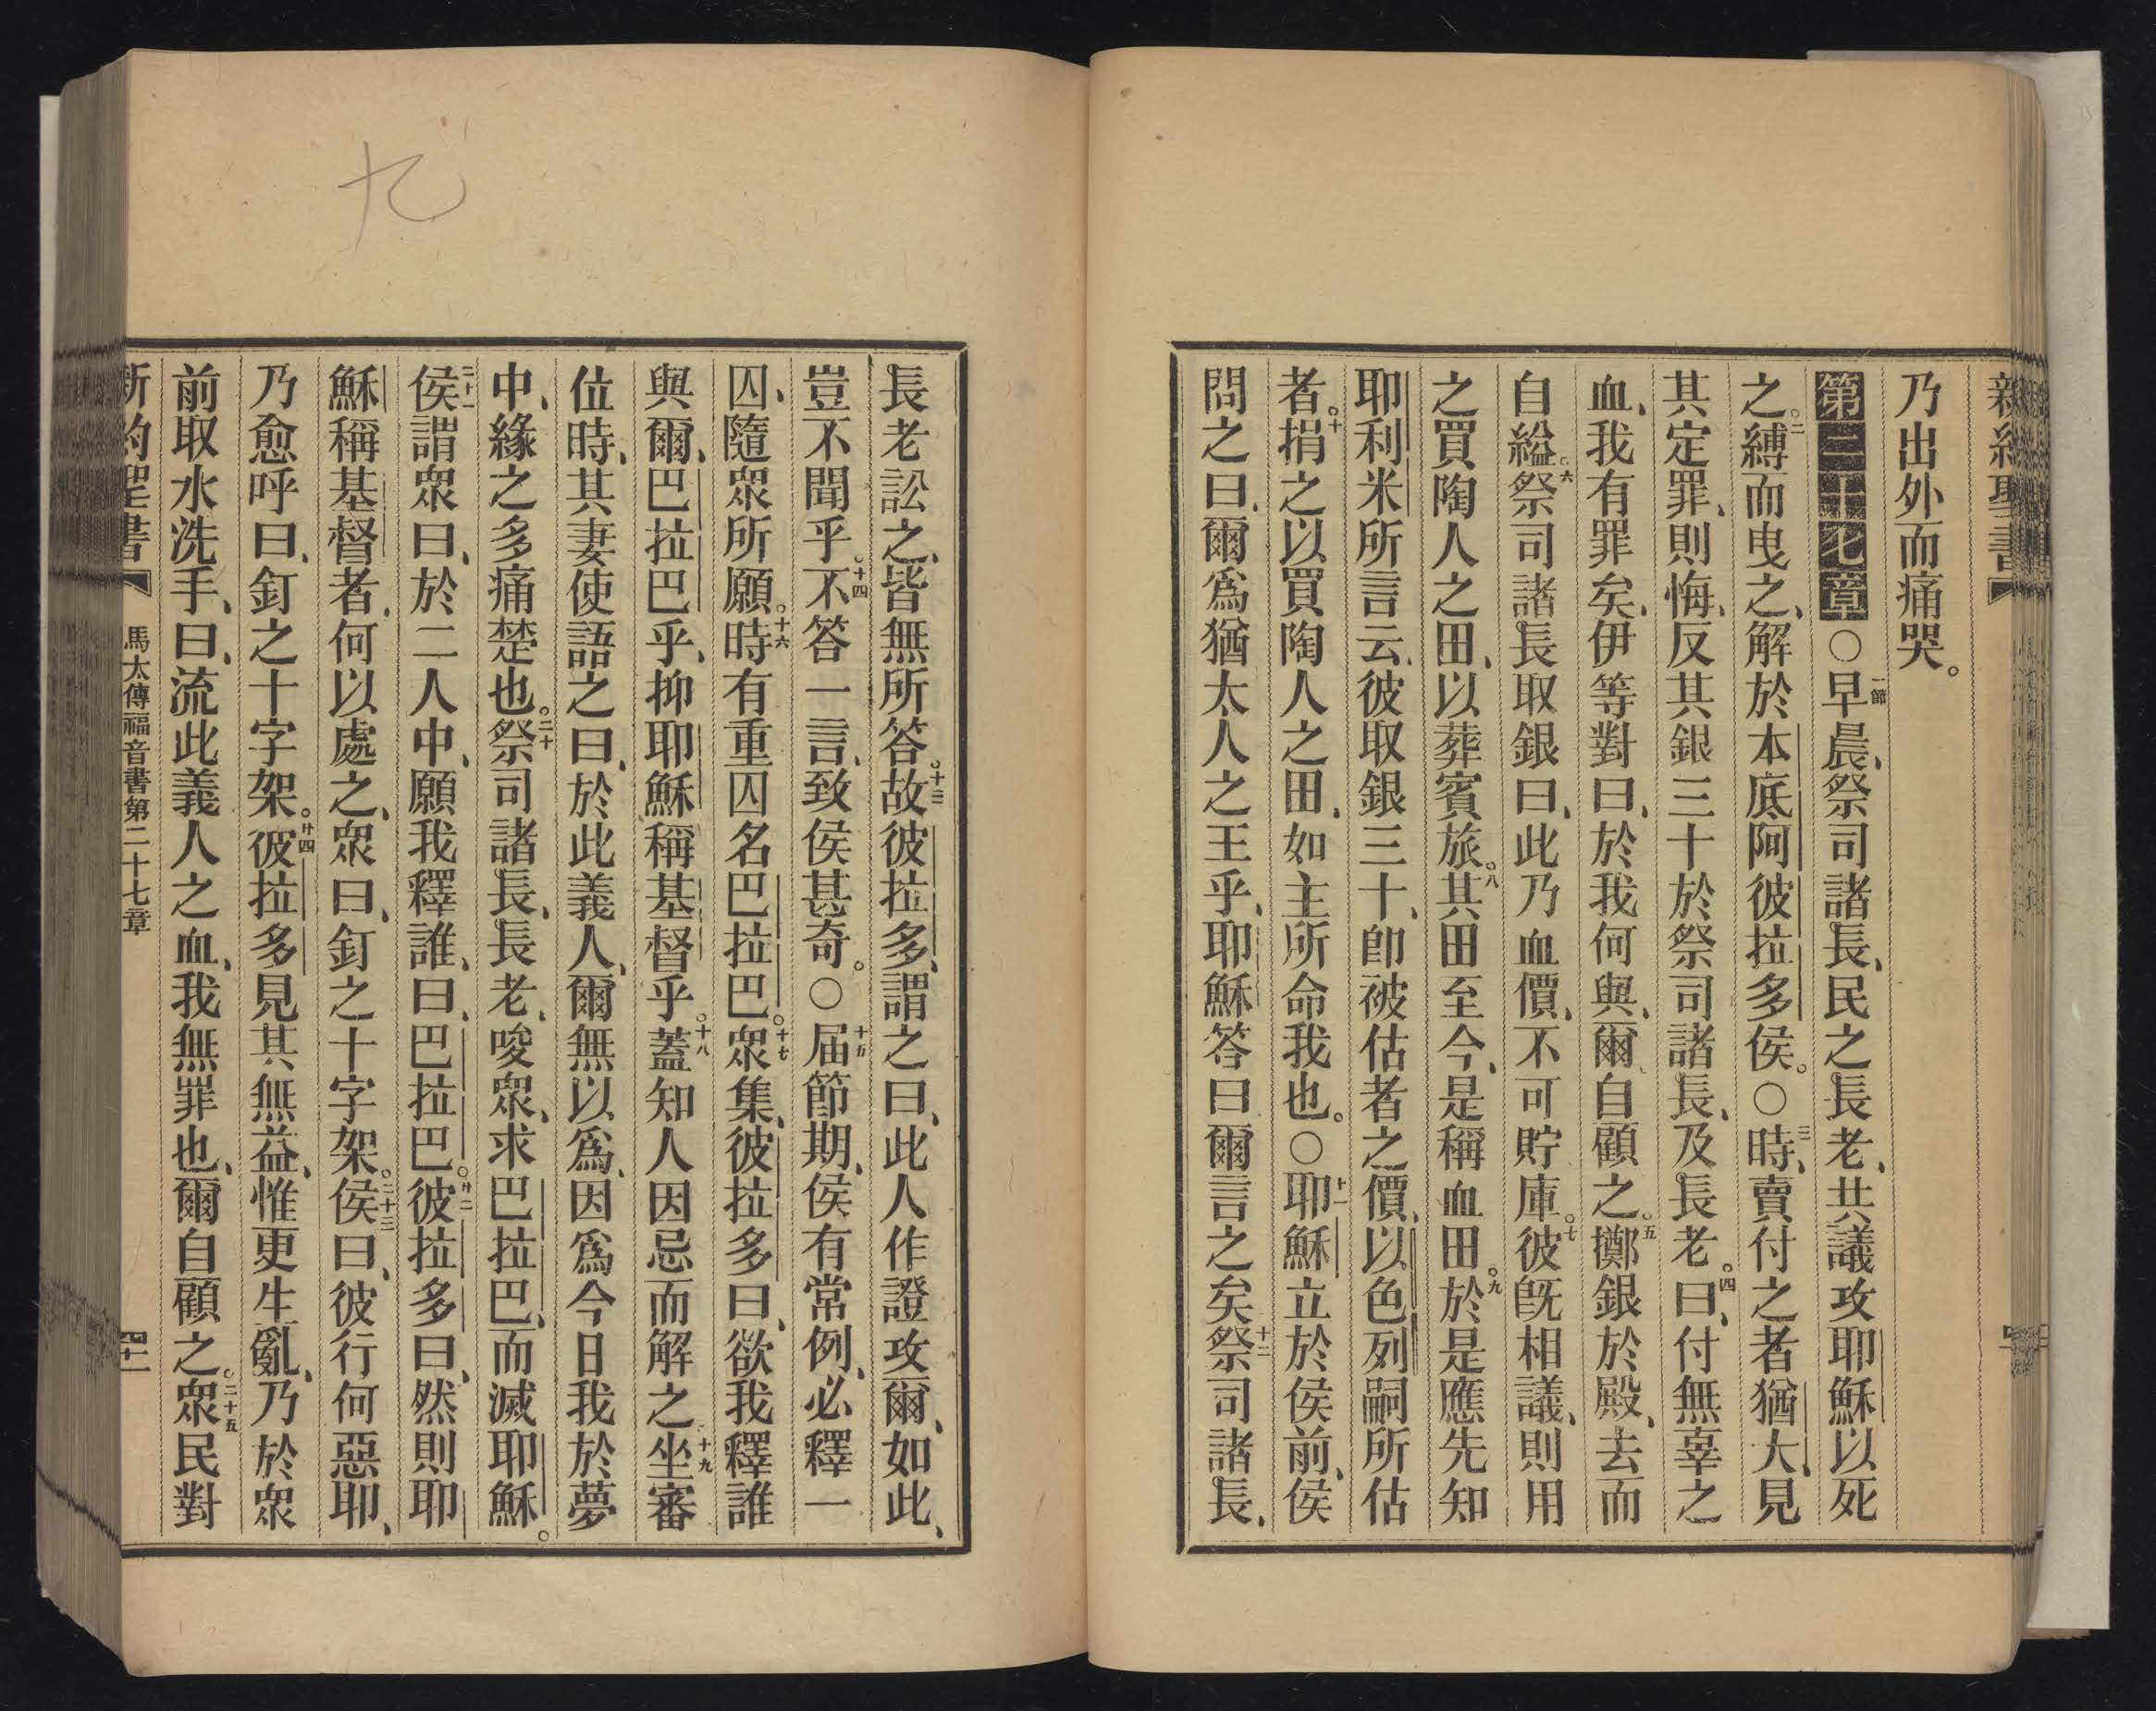 新約聖書
乃出外而痛哭。
第二十七章○一節早晨、祭司諸長、民之長老、共議攻耶穌以死
之。二縛而曳之、解於本底阿彼拉多侯。○三時、賣付之者猶大、見
其定罪、則悔、反其銀三十於祭司諸長、及長老。四曰、付無辜之
血、我有罪矣、伊等對曰、於我何與、爾自顧之。五擲銀於殿、去而
自縊。六祭司諸長取銀曰、此乃血價、不可貯庫。七彼旣相議、則用
之買陶人之田、以葬賓旅。八其田至今、是稱血田。九於是應先知
耶利米所言云、彼取銀三十、卽被估者之價、以色列嗣所估
者。十捐之以買陶人之田、如主所命我也。○十一耶穌立於侯前、侯
問之曰、爾爲猶太人之王乎、耶穌答曰爾言之矣十二祭司諸長、
長老訟之、皆無所答。十三故彼拉多、謂之曰、此人作證攻爾、如此、
豈不聞乎。十四不答一言、致侯甚奇。○十五届節期、侯有常例、必釋一
囚、隨眾所願。十六時有重囚名巴拉巴。十七眾集、彼拉多曰、欲我釋誰
與爾、巴拉巴乎、抑耶穌稱基督乎。十八蓋知人因忌而解之十九坐審
位時、其妻使語之曰、於此義人、爾無以爲、因爲今日我於夢
中、緣之多痛楚也。二十祭司諸長、長老、唆眾、求巴拉巴、而滅耶穌。
二十一侯謂眾曰、於二人中、願我釋誰、曰、巴拉巴。廿二彼拉多曰、然則耶
穌稱基督者、何以處之、眾曰、釘之十字架。二十三侯曰、彼行何惡耶、
乃愈呼曰、釘之十字架。廿四彼拉多見其無益、惟更生亂、乃於眾
前取水洗手、曰、流此義人之血、我無罪也、爾自顧之。二十五眾民對
新約聖書 馬太傳福音書第二十七章 四十一
九